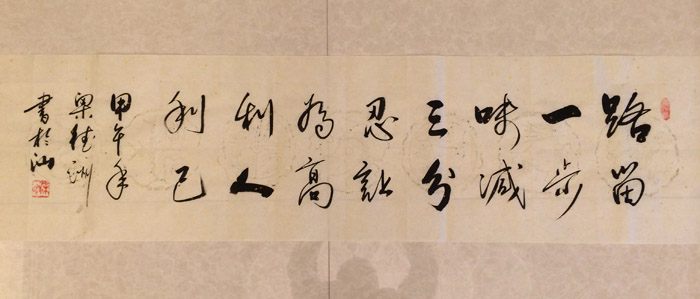 路留
一步
味减
三分
忍讓
為高
利人
利己
甲午年
梁桂洲
書於汕